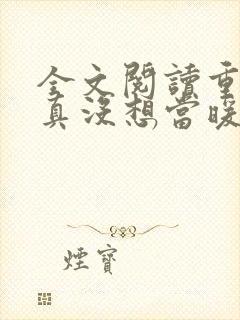 全文閱讀重
真沒想當暖
煙寶